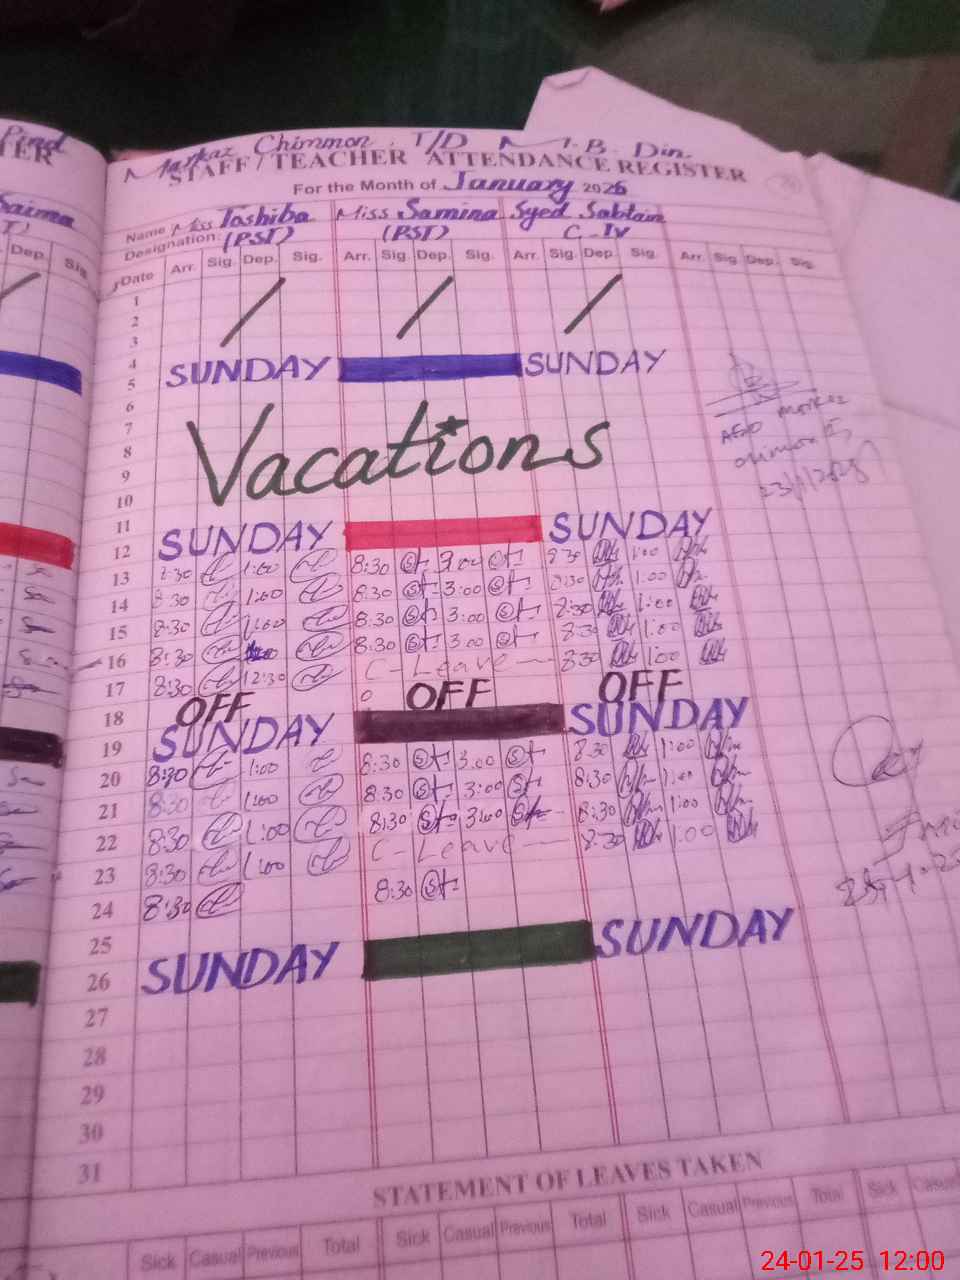 Pind
TER
Markaz Chimmon. T/D M.B. Din.
STAFF / TEACHER ATTENDANCE REGISTER
For the Month of January 2026
Saima
Name Miss Toshiba Miss Samina Syed Sabtain
Designation: (PST) (PST) C-IV
Dep. Sig.
Date Arr. Sig. Dep. Sig. Arr. Sig. Dep. Sig. Arr. Sig. Dep. Sig. Arr. Sig. Dep. Sig.
1
2
3
4
SUNDAY SUNDAY
5
6
7
Vacations
8
9
10
11
SUNDAY SUNDAY
12
8:30 1:00 8:30 3:00 8:30 1:00
13
8:30 1:00 8:30 3:00 8:30 1:00
14
8:30 1:00 8:30 3:00 8:30 1:00
15
8:30 8:30 3:00 8:30 1:00
16
8:30 12:30 C-Leave 8:30 1:00
17
OFF OFF OFF
18
SUNDAY SUNDAY
19
8:30 1:00 8:30 3:00 8:30 1:00
20
8:30 1:00 8:30 3:00 8:30 1:00
21
8:30 1:00 8:30 3:00 8:30 1:00
22
8:30 1:00 C-Leave 8:30 1:00
23
8:30 8:30
24
25
SUNDAY SUNDAY
26
27
28
29
30
31
AEO Markaz
STATEMENT OF LEAVES TAKEN
Sick Casual Previous Total Sick Casual Previous Total Sick Casual Previous Total Sick Casual
24-01-25 12:00